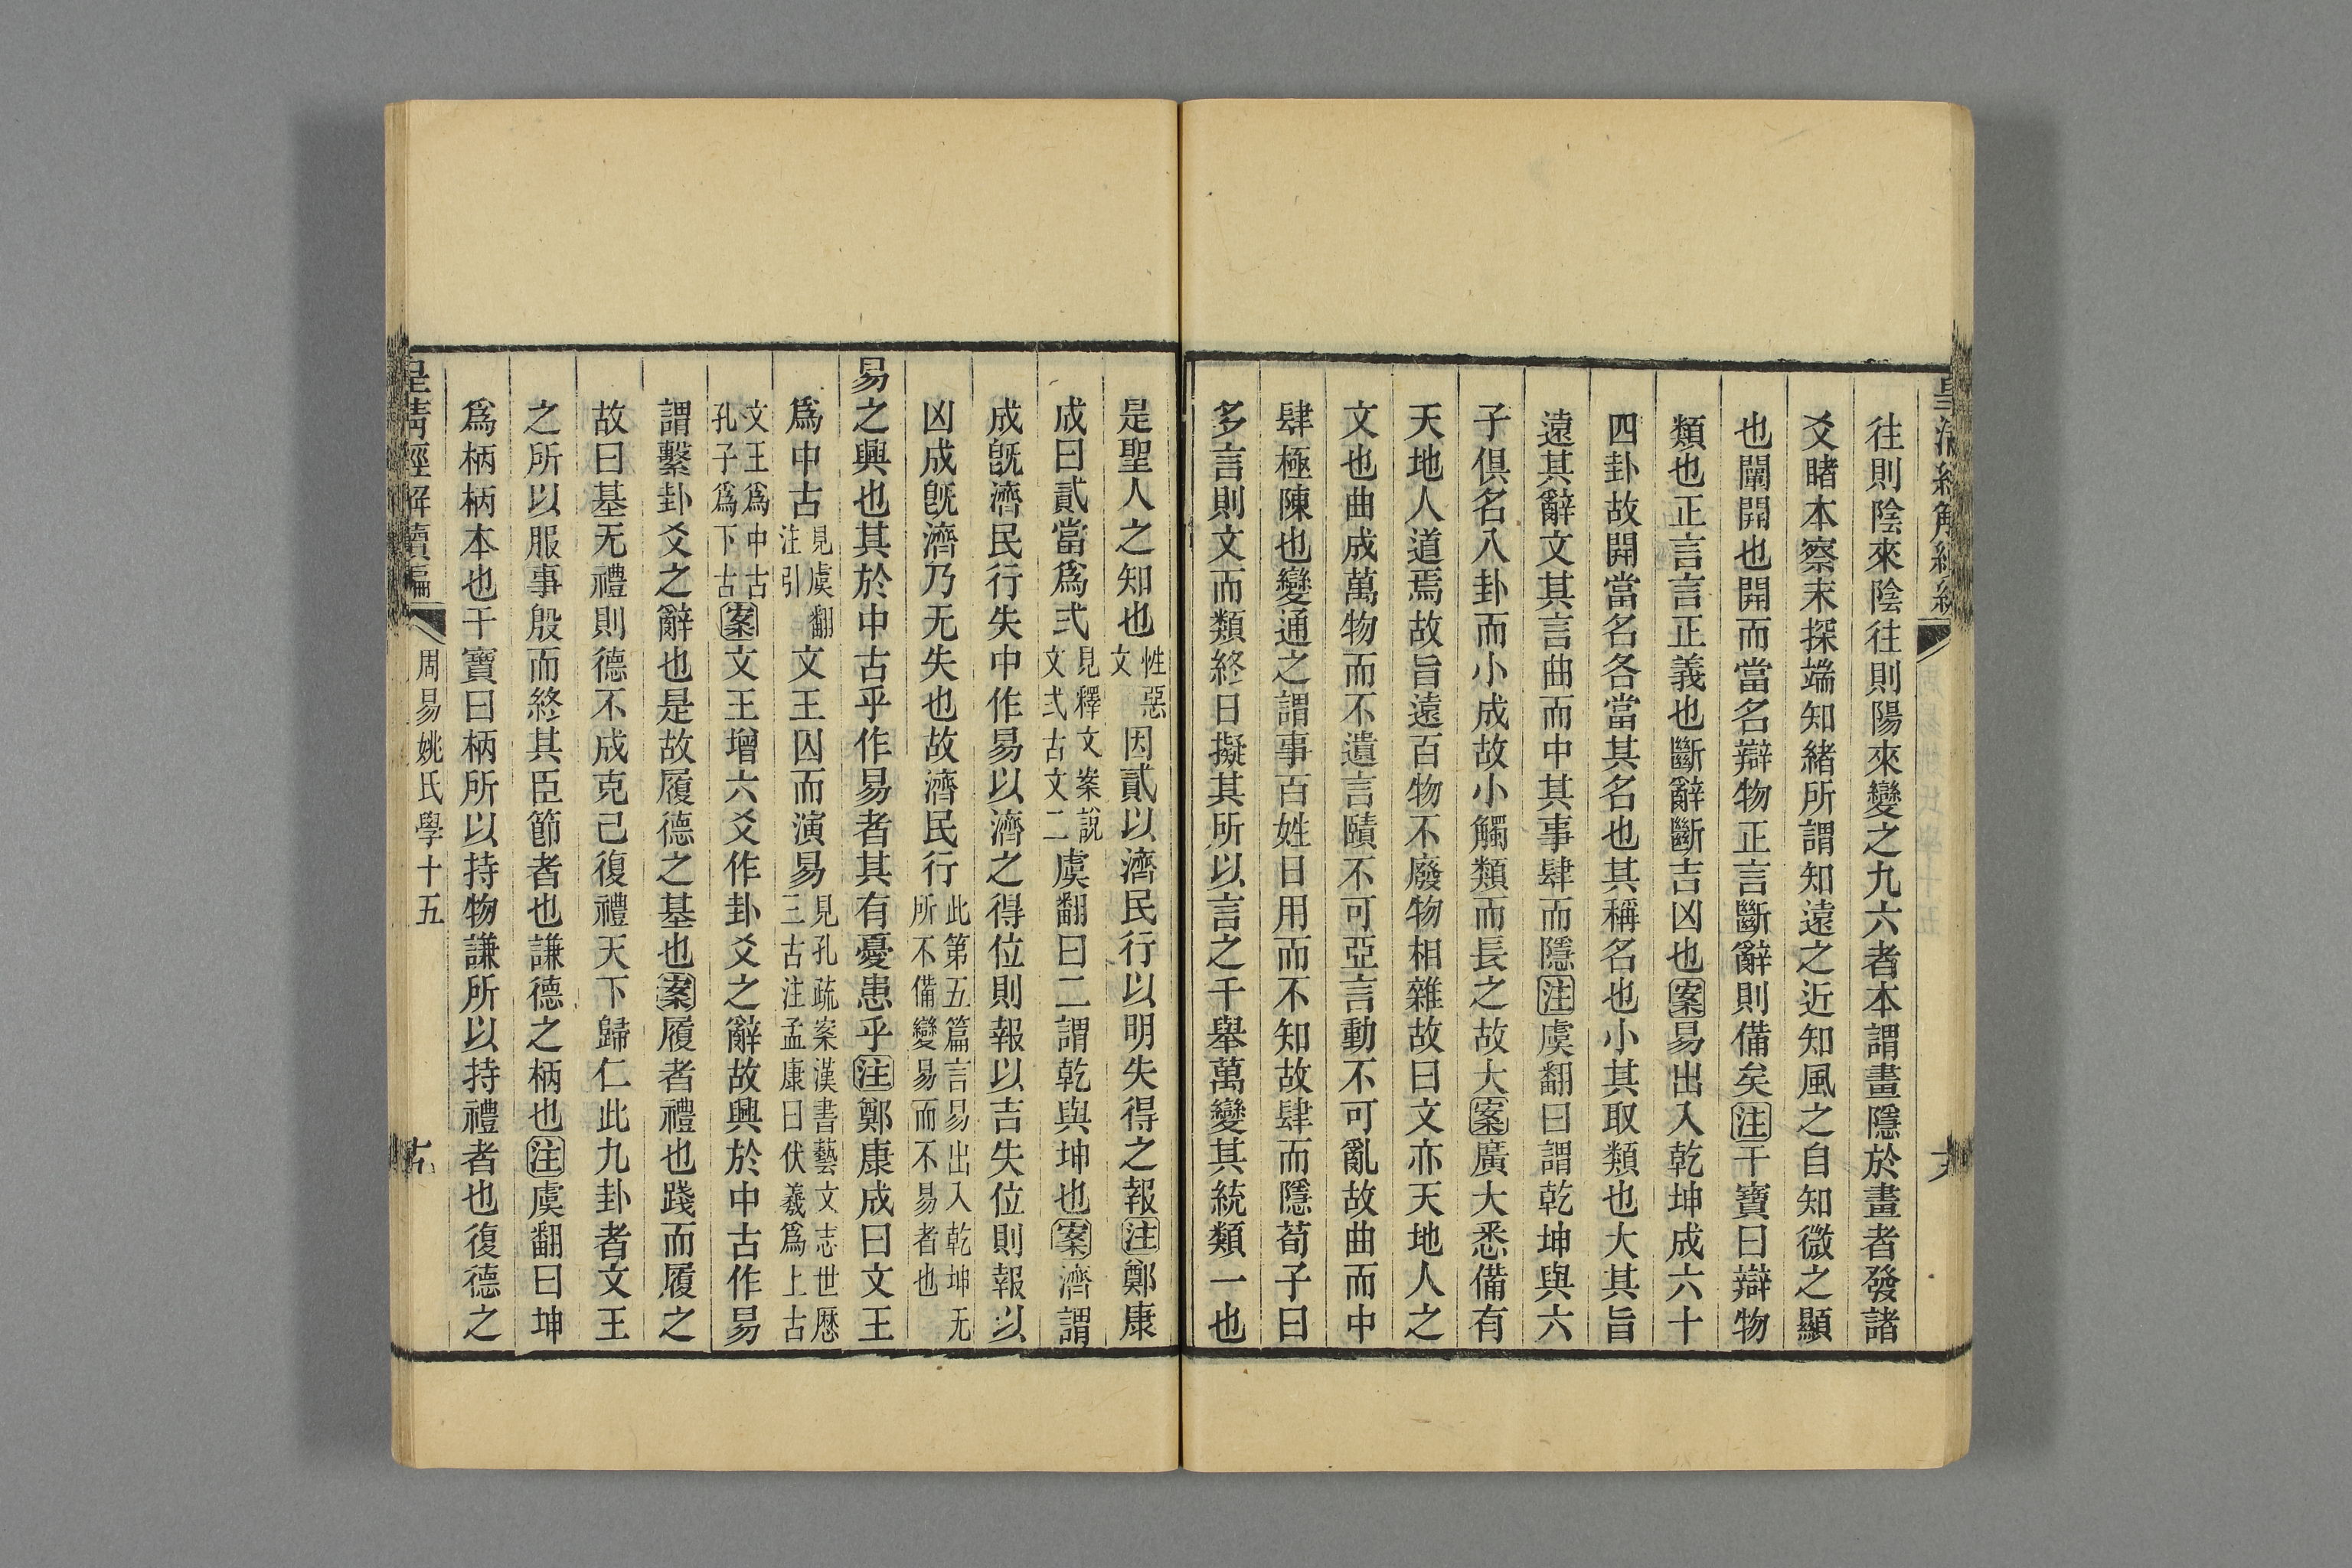 往則陰來陰往則陽來變之九六者本謂畫隱於畫者發諸
爻睹本察末探端知緒所謂知遠之近知風之自知微之顯
也闡開也開而當名辯物正言斷辭則備矣注干寶曰辯物
類也正言言正義也斷辭斷吉凶也案易出入乾坤成六十
四卦故開當名各當其名也其稱名也小其取類也大其旨
遠其辭文其言曲而中其事肆而隱注虞翻曰謂乾坤與六
子俱名八卦而小成故小觸類而長之故大案廣大悉備有
天地人道焉故旨遠百物不廢物相雜故曰文亦天地人之
文也曲成萬物而不遺言賾不可亞言動不可亂故曲而中
肆極陳也變通之謂事百姓日用而不知故肆而隱荀子曰
多言則文而類終日擬其所以言之千舉萬變其統類一也
是聖人之知也性惡文因貳以濟民行以明失得之報注鄭康
成曰貳當爲弍見釋文案說文弍古文二虞翻曰二謂乾與坤也案濟謂
成旣濟民行失中作易以濟之得位則報以吉失位則報以
凶成旣濟乃无失也故濟民行此第五篇言易出入乾坤无所不備變易而不易者也
易之興也其於中古乎作易者其有憂患乎注鄭康成曰文王
爲中古見虞翻注引文王囚而演易見孔疏案漢書藝文志世歷三古注孟康曰伏羲爲上古
文王爲中古孔子爲下古案文王增六爻作卦爻之辭故興於中古作易
謂繫卦爻之辭也是故履德之基也案履者禮也踐而履之
故曰基无禮則德不成克己復禮天下歸仁此九卦者文王
之所以服事殷而終其臣節者也謙德之柄也注虞翻曰坤
爲柄柄本也干寶曰柄所以持物謙所以持禮者也復德之
皇清經解續編
周易姚氏學十五